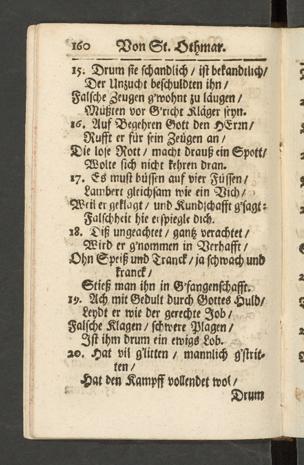 160 Von St. Othmar.
15. Drum sie schandlich / ist bekandtlich/
Der Unzucht beschuldten ihn /
Falsche Zeugen g'wohnt zu läugen /
Müßten vor G'richt Kläger seyn.
16. Auf Begehren Gott den HErrn/
Rufft er für sein Zeugen an /
Die lose Rott / macht drauß ein Spott/
Wolte sich nicht kehren dran.
17. Es muß büssen auf vier Füssen /
Lambert gleichsam wie ein Vich/
Weil er geklagt / und Kundschafft g'sagt:
Falschheit hie erspiegle dich.
18. Diß ungeachtet / gantz verachtet /
Wird er g'nommen in Verhafft /
Ohn Speiß und Tranck / ja schwach und
kranck /
Stieß man ihn in G'fangenschafft.
19. Ach mit Gedult durch Gottes Huld/
Leydt er wie der gerechte Job /
Falsche Klagen / schwere Plagen /
Ist ihm drum ein ewigs Lob.
20. Hat vil g'litten / mannlich g'strit-
ten /
Hat den Kampff vollendet wol /
Drum